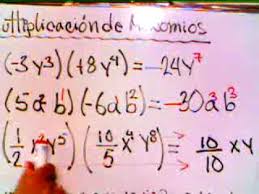 Multiplicación de Monomios
(-3y³)(+8y⁴)=-24y⁷
(5a²b¹)(-6ab²)=-30a³b³
(1/2 x²y⁵)(10/5 x⁴y⁸)=> 10/10 xy